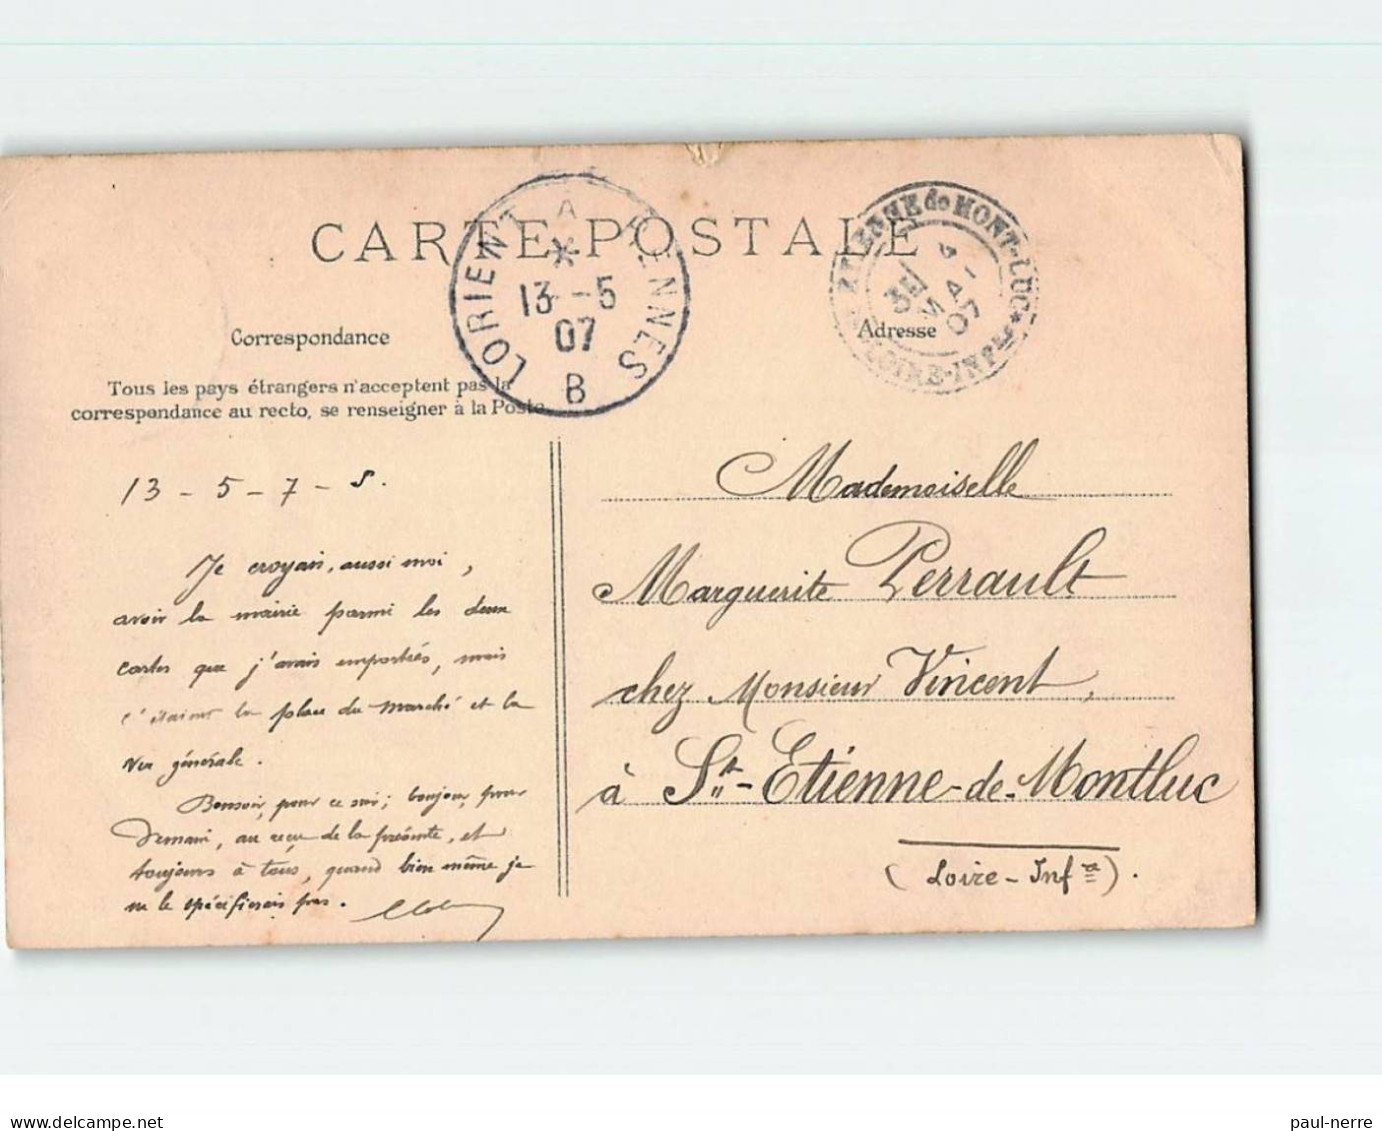 CARTE POSTALE
LORIENT A RENNES
13 - 5
07
B
ETIENNE de MONT-LUC
3E
MAI
07
LOIRE-INFRE
Correspondance
Adresse
Tous les pays étrangers n'acceptent pas la
correspondance au recto, se renseigner à la Poste
13 - 5 - 7 - S.
Je croyais, aussi moi,
avoir la mairie parmi les deux
cartes que j'avais emportées, mais
c'étaient la place du marché et la
Vue générale.
Bonsoir, pour ce soir; bonjour, pour
Demain, au reçu de la présente, et
toujours à tous, quand bien même je
ne le spécifierais pas.
Mademoiselle
Marguerite Perrault
chez Monsieur Vincent,
à St-Etienne-de-Montluc
(Loire-Infre).
www.delcampe.net
paul-nerre